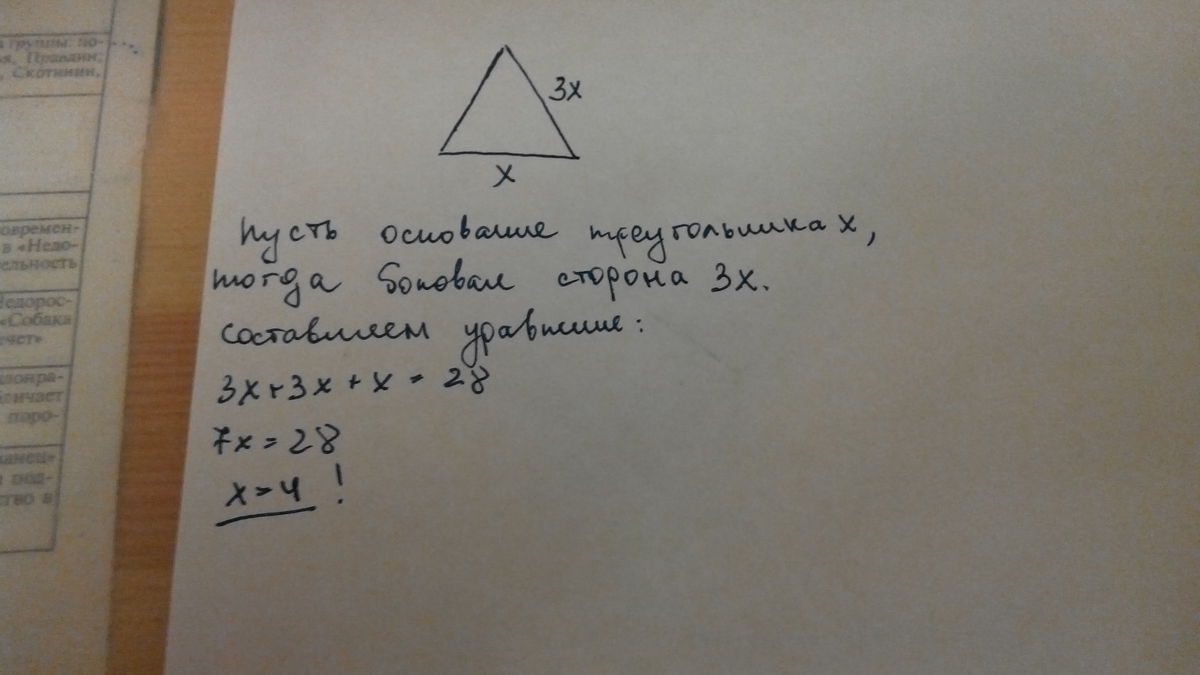 а группы: по-
ья, Правдин;
, Скотинин,
овремен-
в «Недо-
ельность
Недорос-
«Собака
ечет»
лонра-
бличает
поро-
анец»
под-
ство в
3x
x
Пусть основание треугольника x,
тогда боковая сторона 3x.
Составляем уравнение:
3x+3x+x=28
7x=28
x=4!